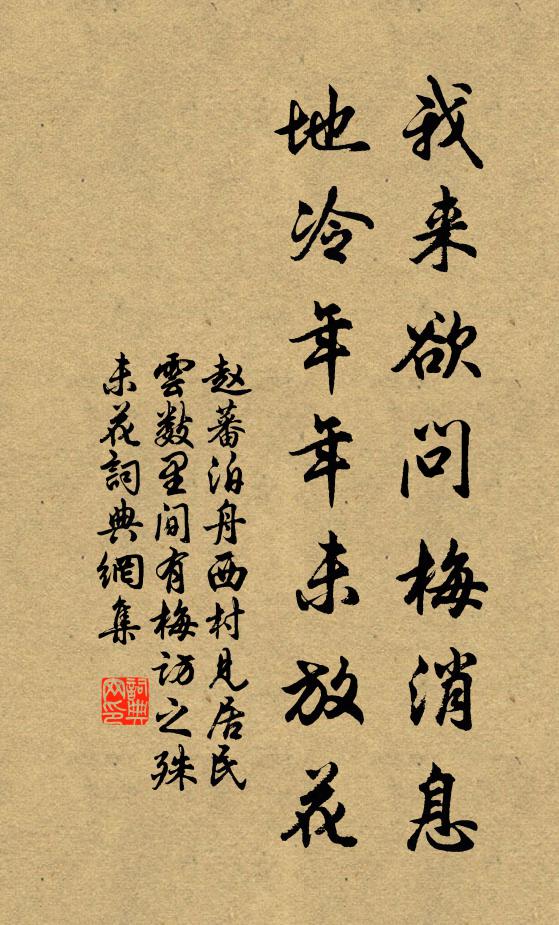 我来欲问梅消息
地冷年年未放花
赵蕃泊舟西村見居民
雲数里间有梅访之殊
未花詞典網集
詞典
网印